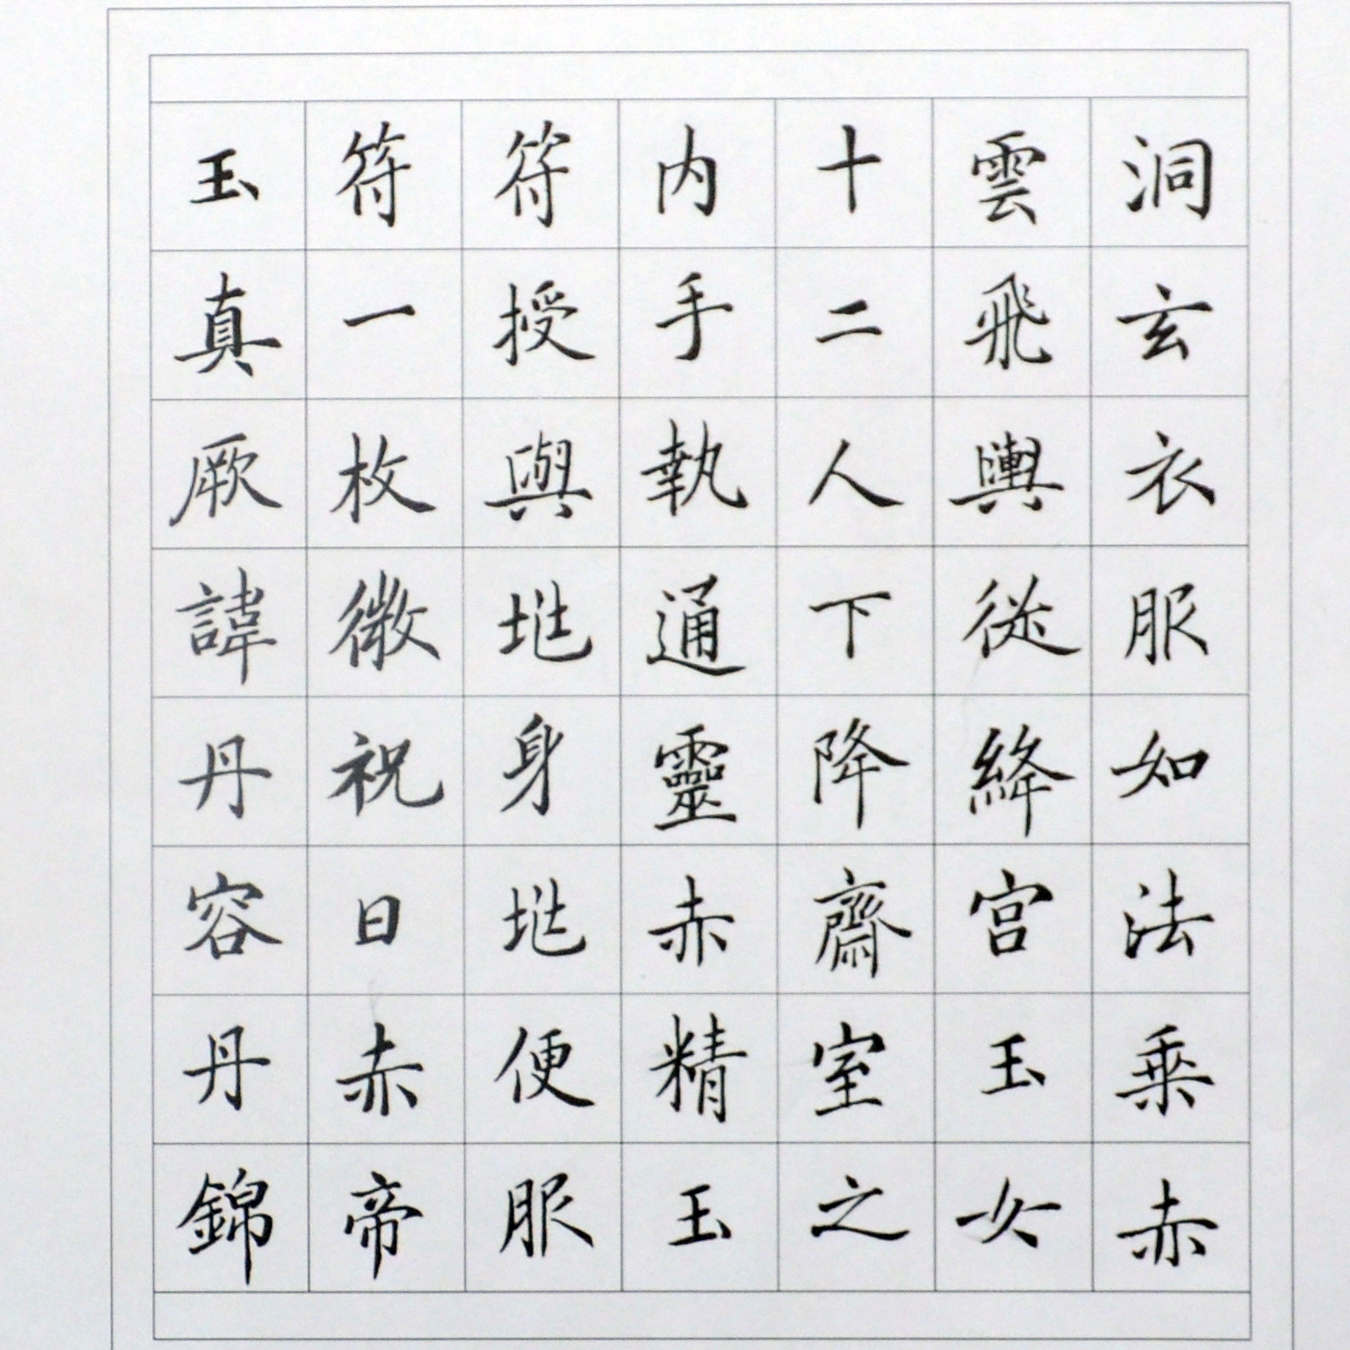 洞玄衣服如法乗赤
雲飛輿從絳宮玉女
十二人下降齋室之
内手執通靈赤精玉
符授與兆身兆便服
符一枚微祝日赤帝
玉真厥諱丹容丹錦